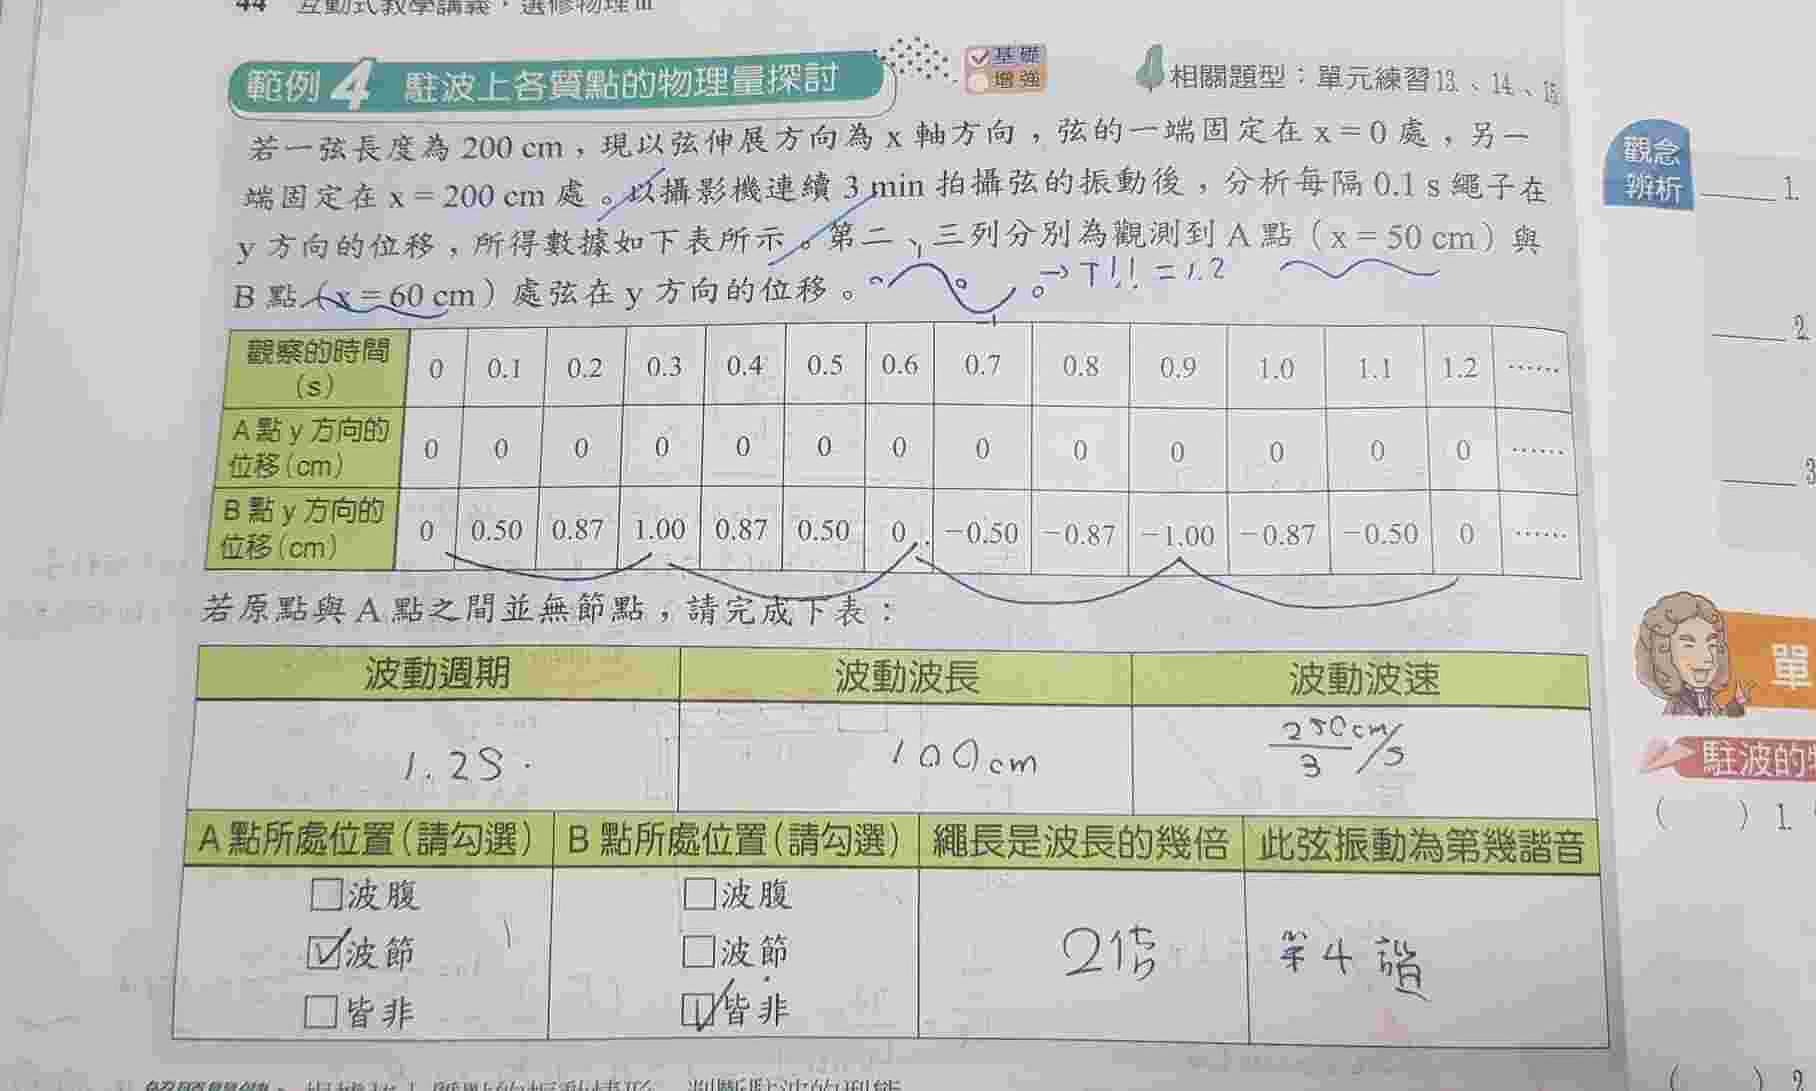 44 互動式教學講義・選修物理III
範例4 駐波上各質點的物理量探討
基礎
增強
相關題型：單元練習13、14、15
若一弦長度為 200 cm，現以弦伸展方向為 x 軸方向，弦的一端固定在 x = 0 處，另一
端固定在 x = 200 cm 處。以攝影機連續 3 min 拍攝弦的振動後，分析每隔 0.1 s 繩子在
y 方向的位移，所得數據如下表所示。第二、三列分別為觀測到 A 點（x = 50 cm）與
B 點（x = 60 cm）處弦在 y 方向的位移。
0 1 0 -1 0 → T!! = 1.2
觀察的時間(s) 0 0.1 0.2 0.3 0.4 0.5 0.6 0.7 0.8 0.9 1.0 1.1 1.2 ……
A 點 y 方向的位移(cm) 0 0 0 0 0 0 0 0 0 0 0 0 0 ……
B 點 y 方向的位移(cm) 0 0.50 0.87 1.00 0.87 0.50 0 −0.50 −0.87 −1.00 −0.87 −0.50 0 ……
若原點與 A 點之間並無節點，請完成下表：
波動週期 波動波長 波動波速
1.2S. 100cm 250cm/3 /S
A 點所處位置(請勾選) B 點所處位置(請勾選) 繩長是波長的幾倍 此弦振動為第幾諧音
□波腹 □波腹
☑波節 □波節 2倍 第4諧
□皆非 ☑皆非
觀念
辨析
1.
2.
3
單
駐波的
( ) 1.
( ) 2